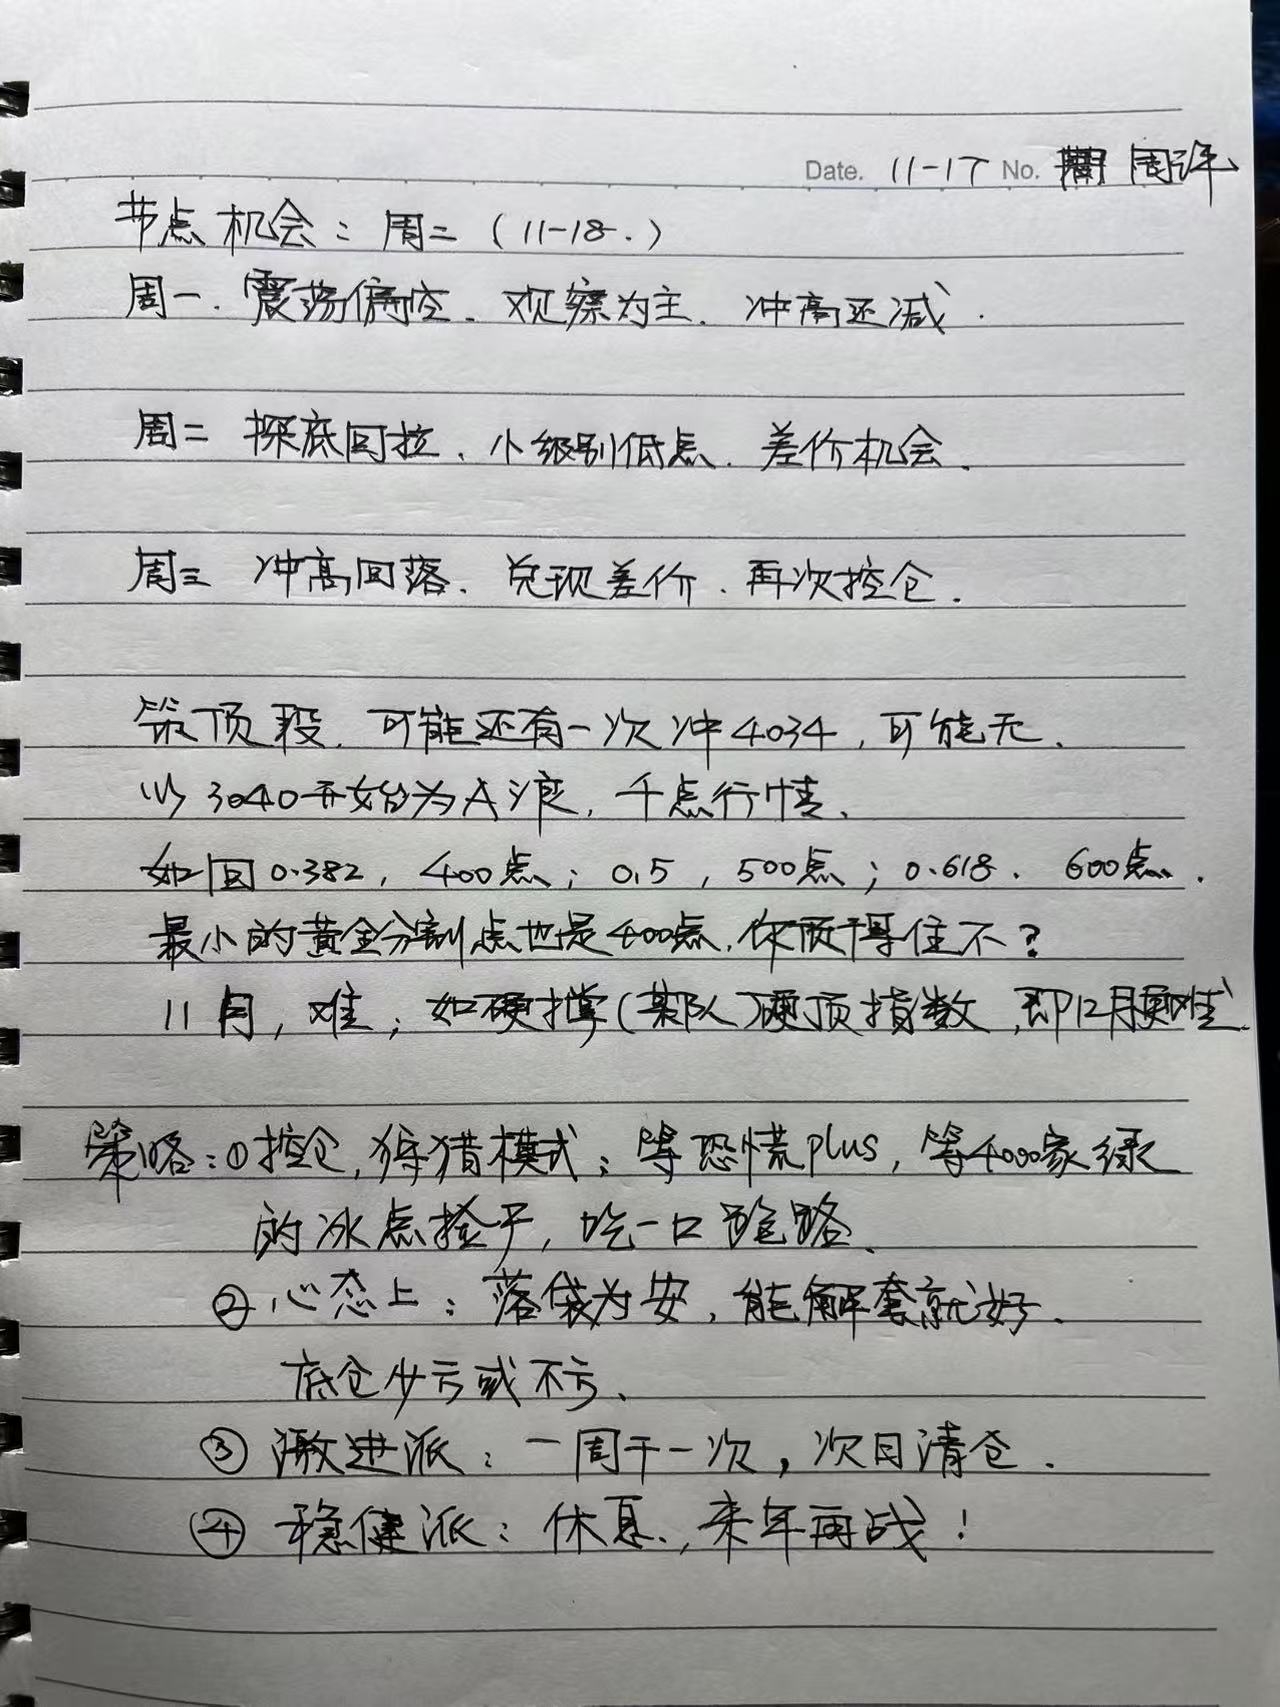 Date. 11-17 No. 周评
节点机会：周二（11-18.）
周一. 震荡偏空、观察为主. 冲高还减.
周二 探底回拉、小级别低点. 差价机会.
周三 冲高回落. 兑现差价. 再次控仓.
筑顶段. 可能还有一次冲4034，可能无.
以3040开始为A浪，千点行情.
如回0.382，400点；0.5，500点；0.618. 600点.
最小的黄金分割点也是400点，你顶得住不？
11月，难，如硬撑（某队）硬顶指数，即12月更难.
策略：①控仓，狩猎模式；等恐慌plus，等4000家绿
的冰点捡子，吃一口跑路.
②心态上：落袋为安，能解套就好.
底仓少亏或不亏.
③激进派：一周干一次，次日清仓.
④稳健派：休息，来年再战！